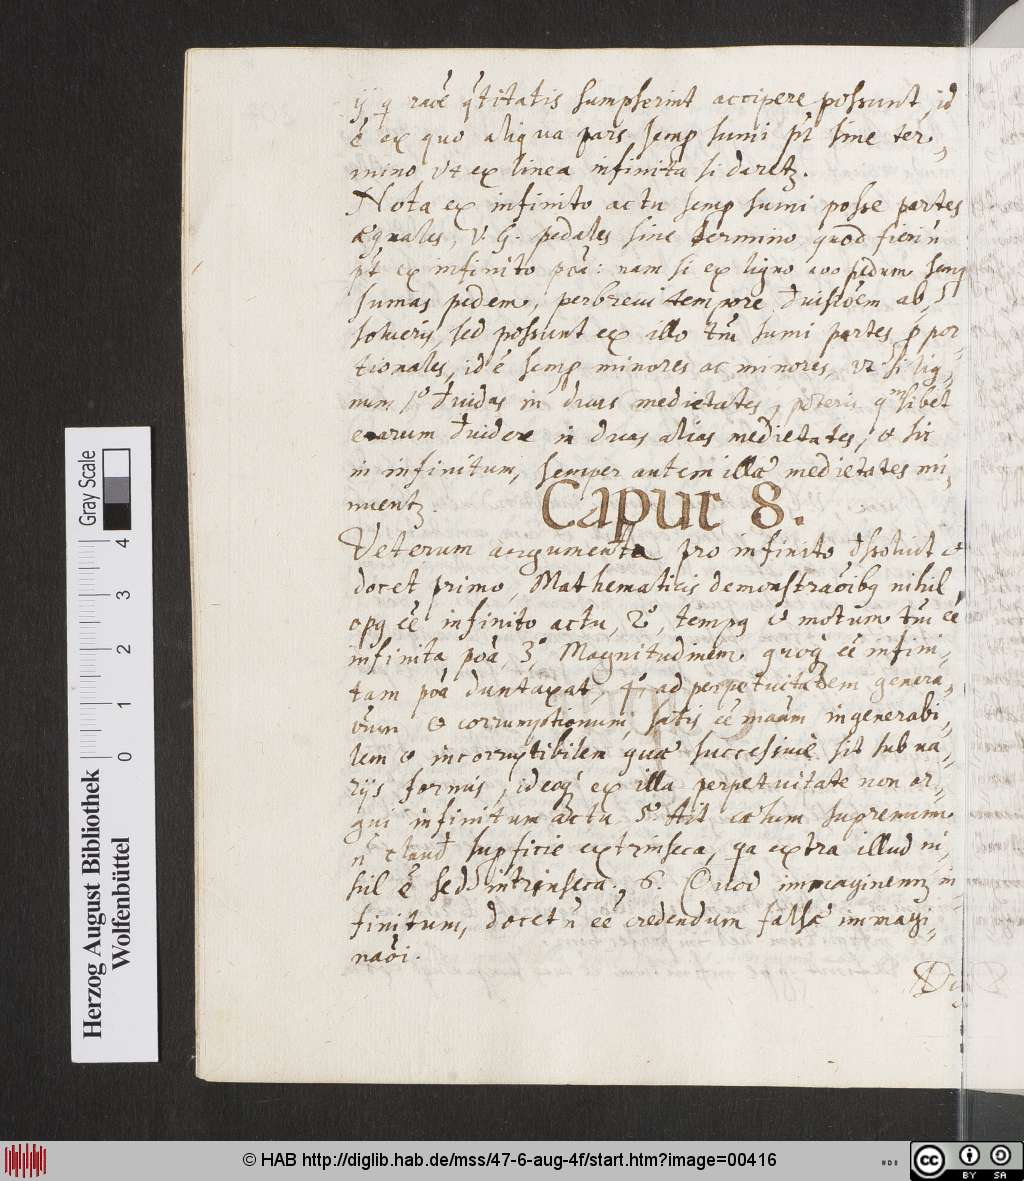 ij q raōe q̄titatis sumpserint accipere possunt, id
ē ex quo aliqua pars semp sumi pt sine ter,,
mino vt ex linea infinita si daretz.
Nota ex infinito actu semp sumi posse partes
æquales, v. G. pedales sine termino quod fieri n̄
pt ex infinito poā: nam si ex ligno 200 pedum semp
sumas pedem, perbrevi tempore đuisiōem ab,,
solueris, sed possunt ex illo tm̄ sumi partes ꝓpor,,
tionales, id ē semp minores ac minores, vt si lig,,
num 1º đuidas in duas medietates, poteris qmlibet
earum đuidere in duas alias medietates, et sic
in infinitum, semper autem illæ medietates mi,,
nuentz
Caput 8.
Veterum argumenta pro infinito đssoluit et
docet primo, Mathematicis demonstraōibq nihil
opq eē infinito actu, 2º, tempq et motum tm̄ eē
infinita poā, 3º Magnitudinem quoq eē infini,,
tam poā duntaxat, 4º, ad perpetuitatem genera,,
ōnum et corruptionum, satis eē maām ingenerabi,,
lem et incorruptibilem quæ successiuè sit sub va,,
rijs formis, ideoq ex illa perpetuitate non ar,,
gui infinitum actu 5º Ait cœlum supremum
n̄ claud supficie extrinseca, qa extra illud ni,,
hil ē sed intrinseca, 6. Quod immaginemz in
finitum, docet n̄ eē credendum falsæ immagi,,
naōi.
Di
Herzog August Bibliothek
Wolfenbüttel
Gray Scale
0 1 2 3 4
© HAB http://diglib.hab.de/mss/47-6-aug-4f/start.htm?image=00416
cc BY SA